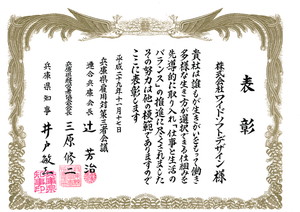 表彰
株式会社ワイドソフトデザイン様
貴社は誰もが生きがいをもって働き
多様な生き方が選択できる仕組みを
先導的に取り入れ「仕事と生活の
バランス」の推進に尽くされました
その努力は他の模範でありますので
ここに表彰します
平成二十九年十一月十七日
兵庫県雇用対策三者会議
連合兵庫会長 辻 芳治
兵庫県経営者協会会長 三原修二
兵庫県知事 井戸敏三